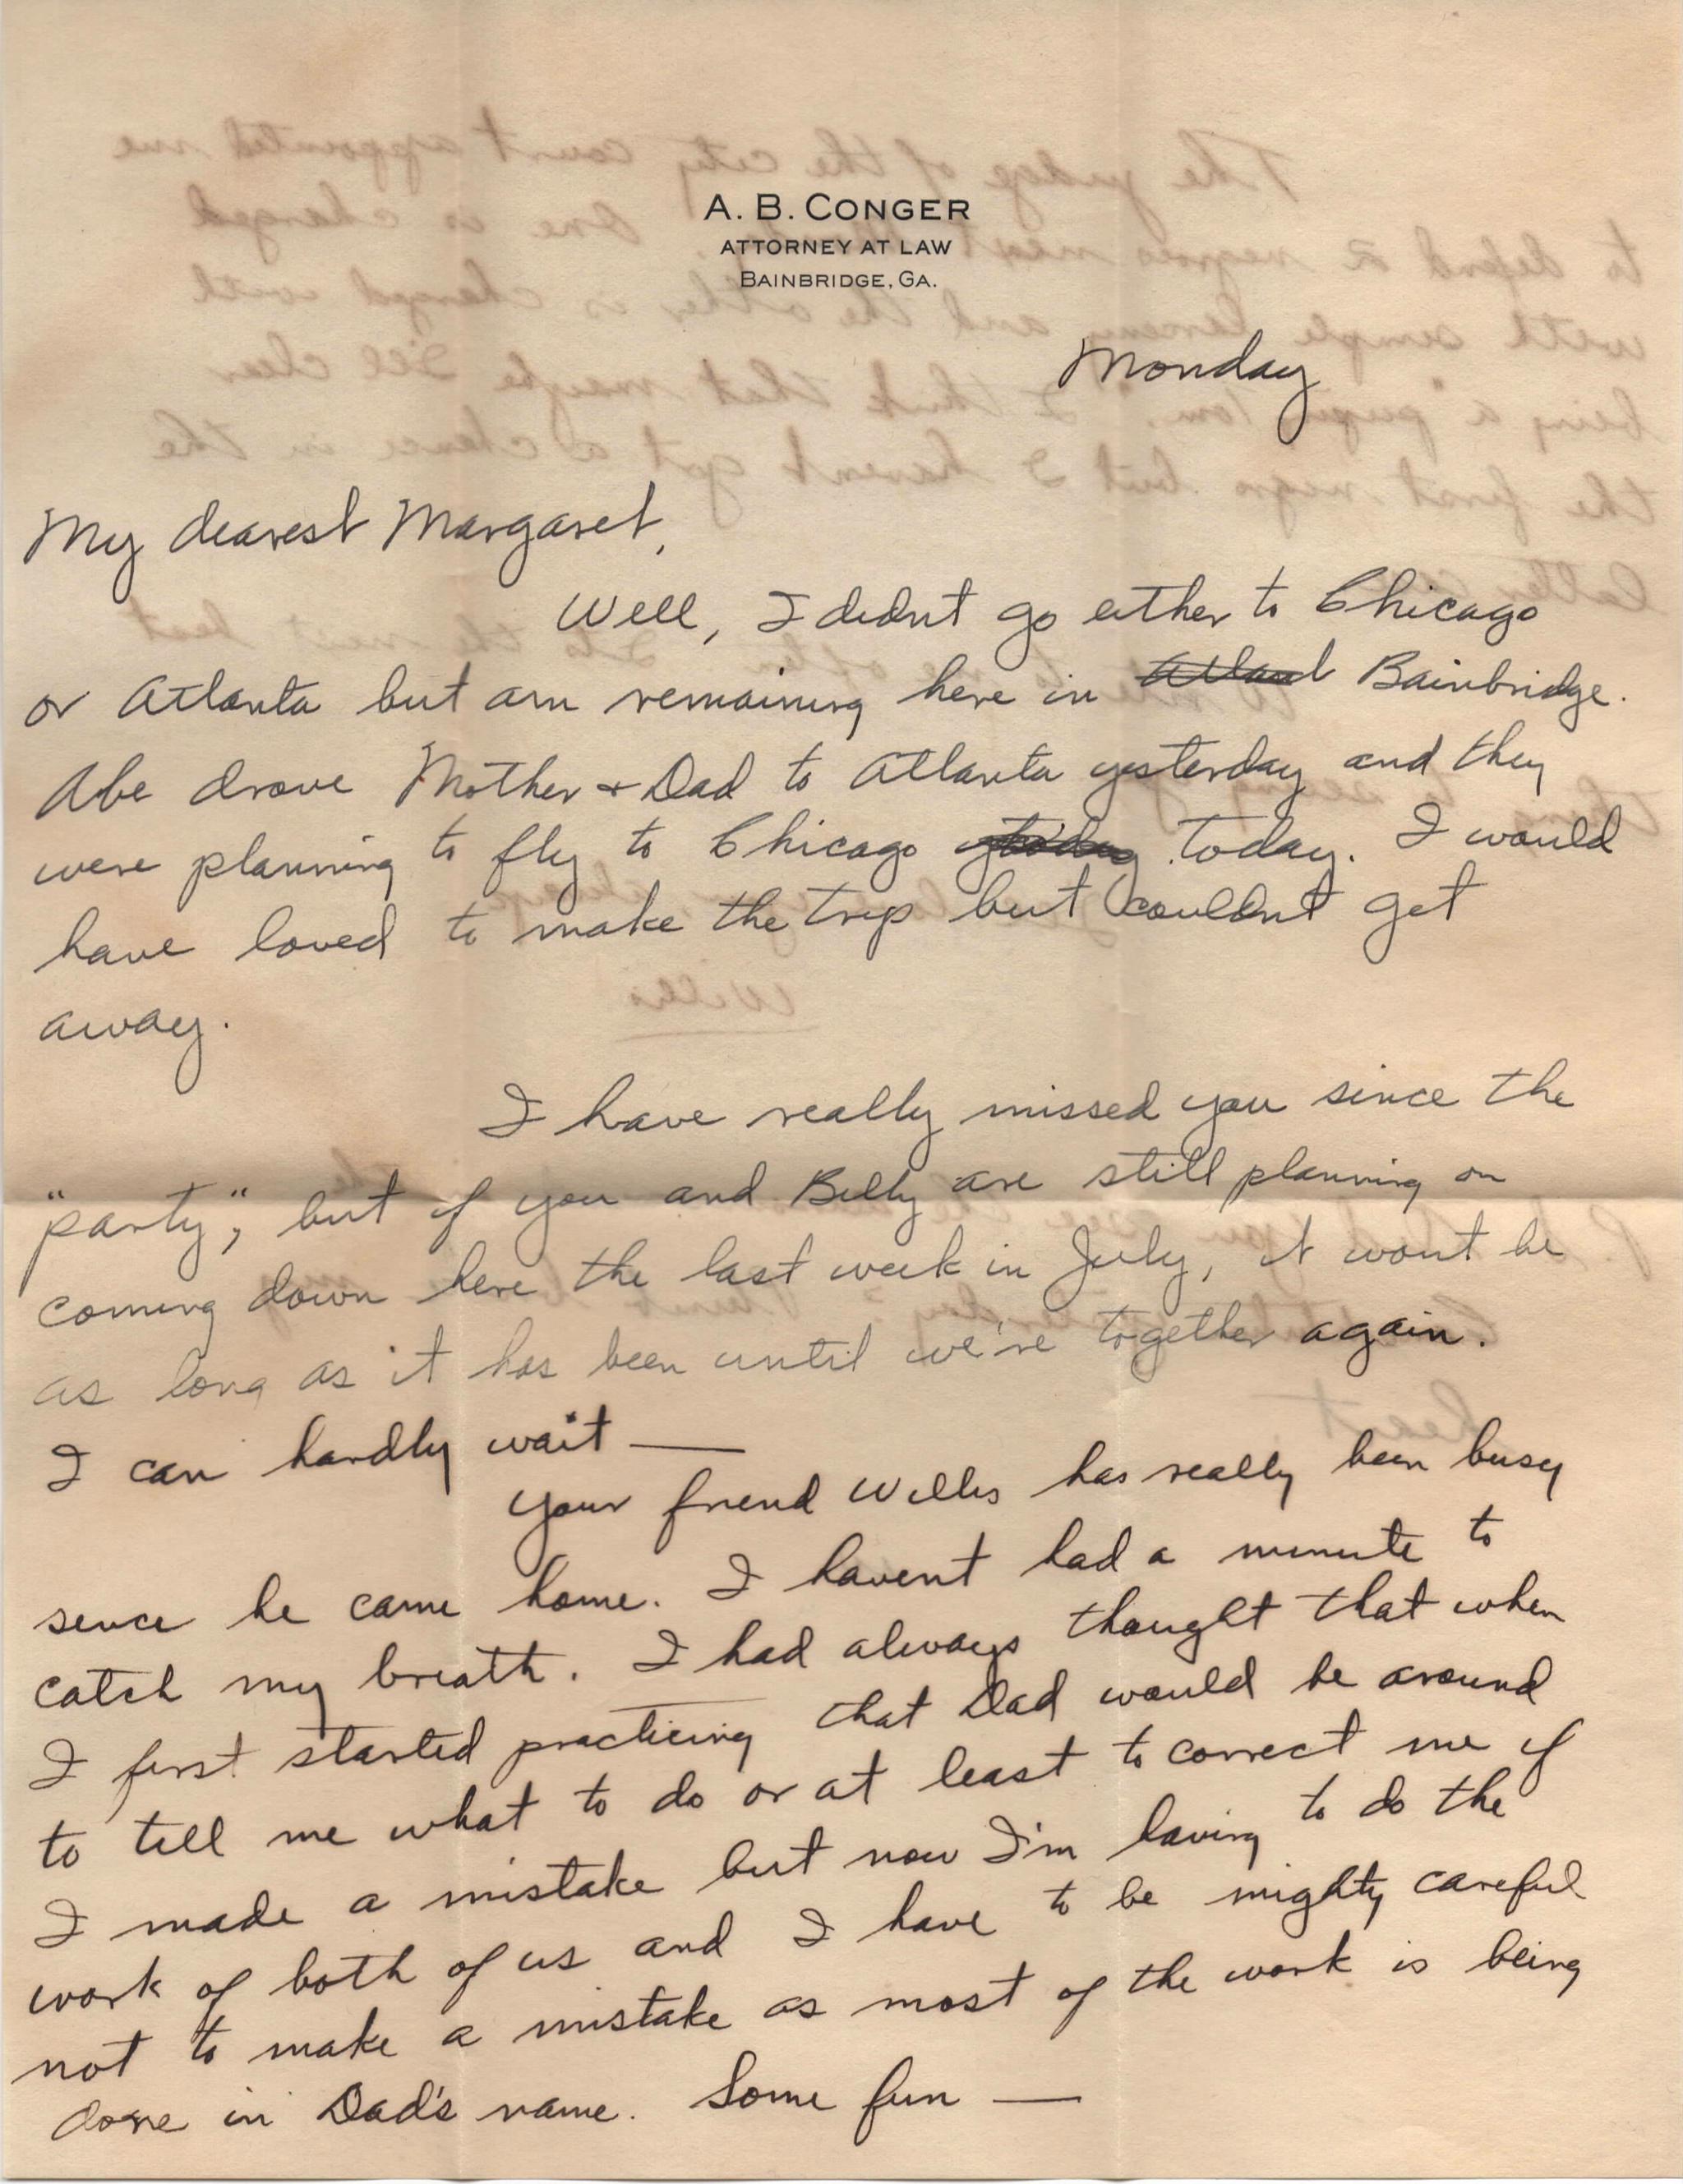 A. B. CONGER
ATTORNEY AT LAW
BAINBRIDGE, GA.
Monday
My dearest Margaret,
Well, I didnt go either to Chicago
or Atlanta but am remaining here in Bainbridge.
Abe drove Mother & Dad to Atlanta yesterday and they
were planning to fly to Chicago today. I would
have loved to make the trip but couldnt get
away.
I have really missed you since the
"party", but if you and Billy are still planning on
coming down here the last week in July, it wont be
as long as it has been until we're together again.
I can hardly wait —
Your friend Willis has really been busy
since he came home. I havent had a minute to
catch my breath. I had always thought that when
I first started practicing that Dad would be around
to tell me what to do or at least to correct me if
I made a mistake but now I'm having to do the
work of both of us and I have to be mighty careful
not to make a mistake as most of the work is being
done in Dad's name. Some fun —